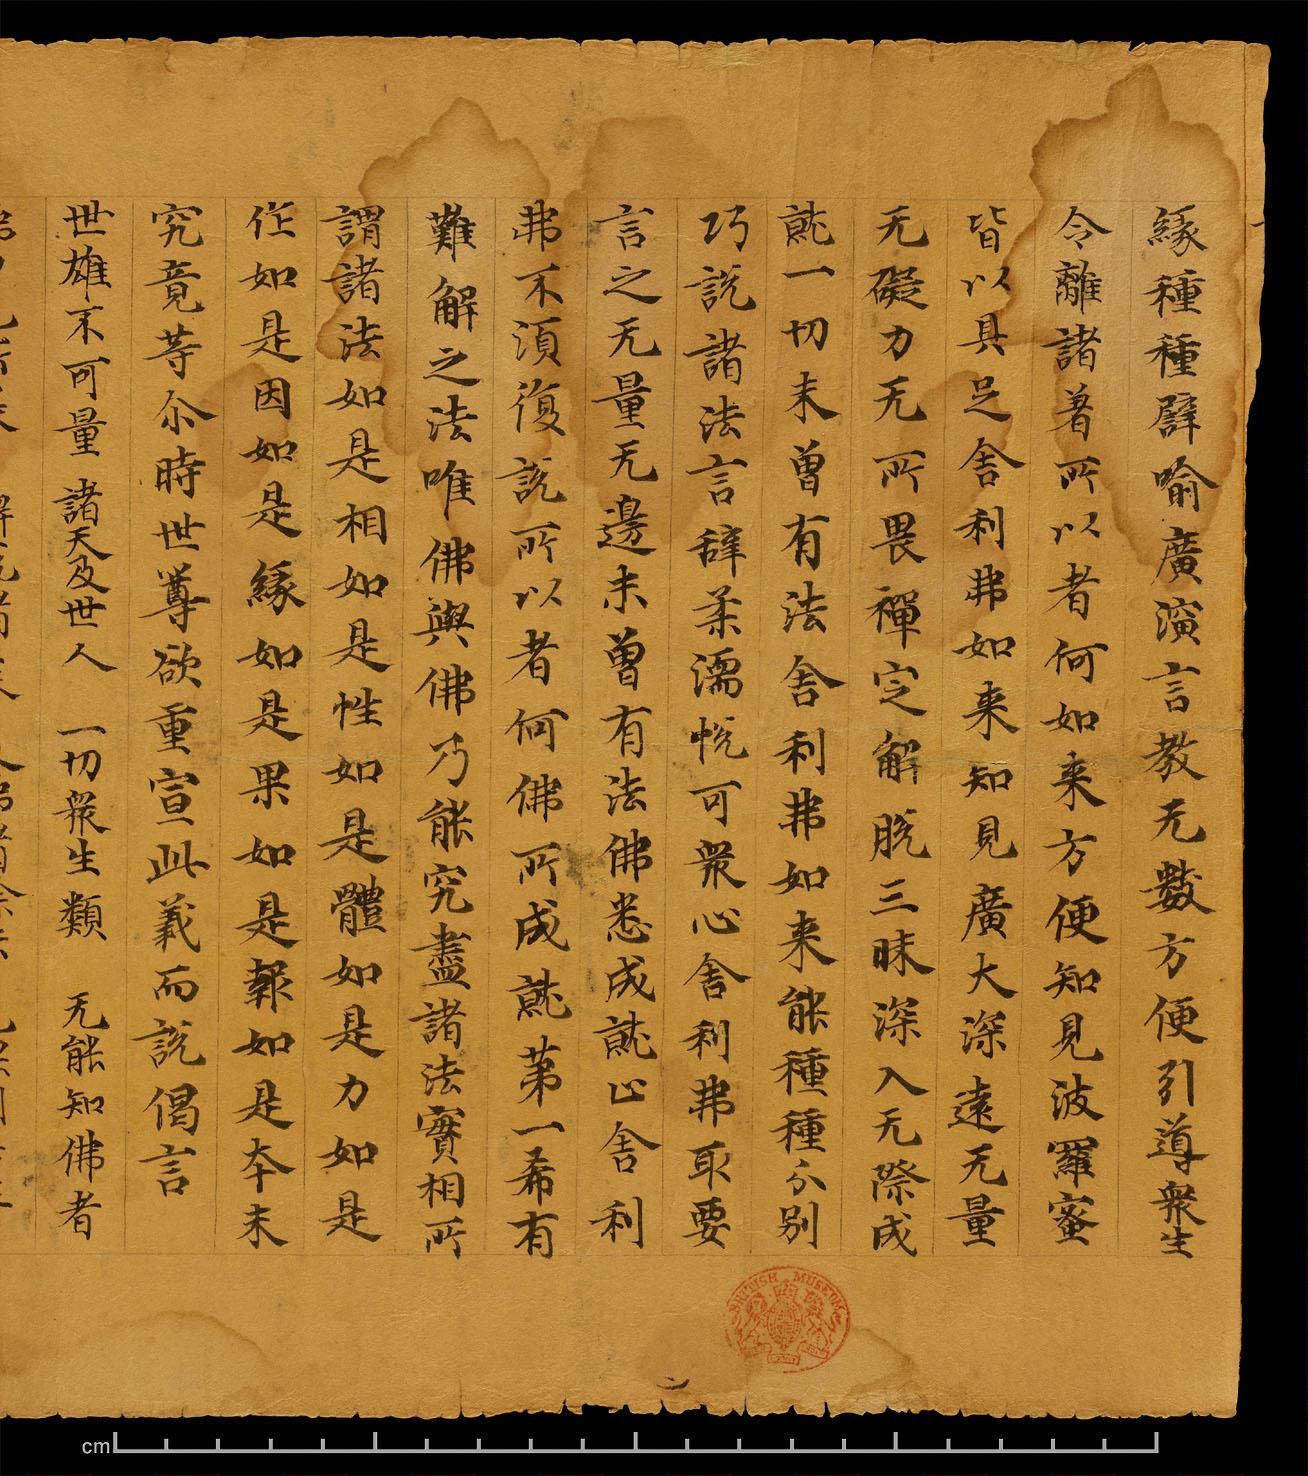 緣種種譬喻廣演言教无數方便引導衆生
令離諸著所以者何如来方便知見波羅蜜
皆以具足舍利弗如来知見廣大深遠无量
无礙力无所畏禪定解脱三昧深入无際成
就一切未曾有法舍利弗如来能種種分別
巧説諸法言辞柔濡悦可衆心舍利弗取要
言之无量无邊未曾有法佛悉成就止舍利
弗不須復説所以者何佛所成就苐一希有
難解之法唯佛與佛乃能究盡諸法實相所
謂諸法如是相如是性如是體如是力如是
作如是因如是緣如是果如是報如是本末
究竟等尒時世尊欲重宣此義而説偈言
世雄不可量 諸天及世人 一切衆生類 无能知佛者
BRITISH MUSEUM
cm